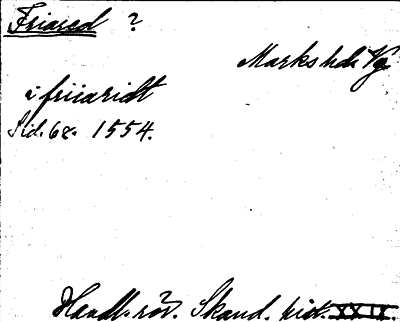 Friared ?
Marks hd. Vg.
i friiaridt
Sid. 68. 1554.
Handl. rör. Skand. hist. XXIX.